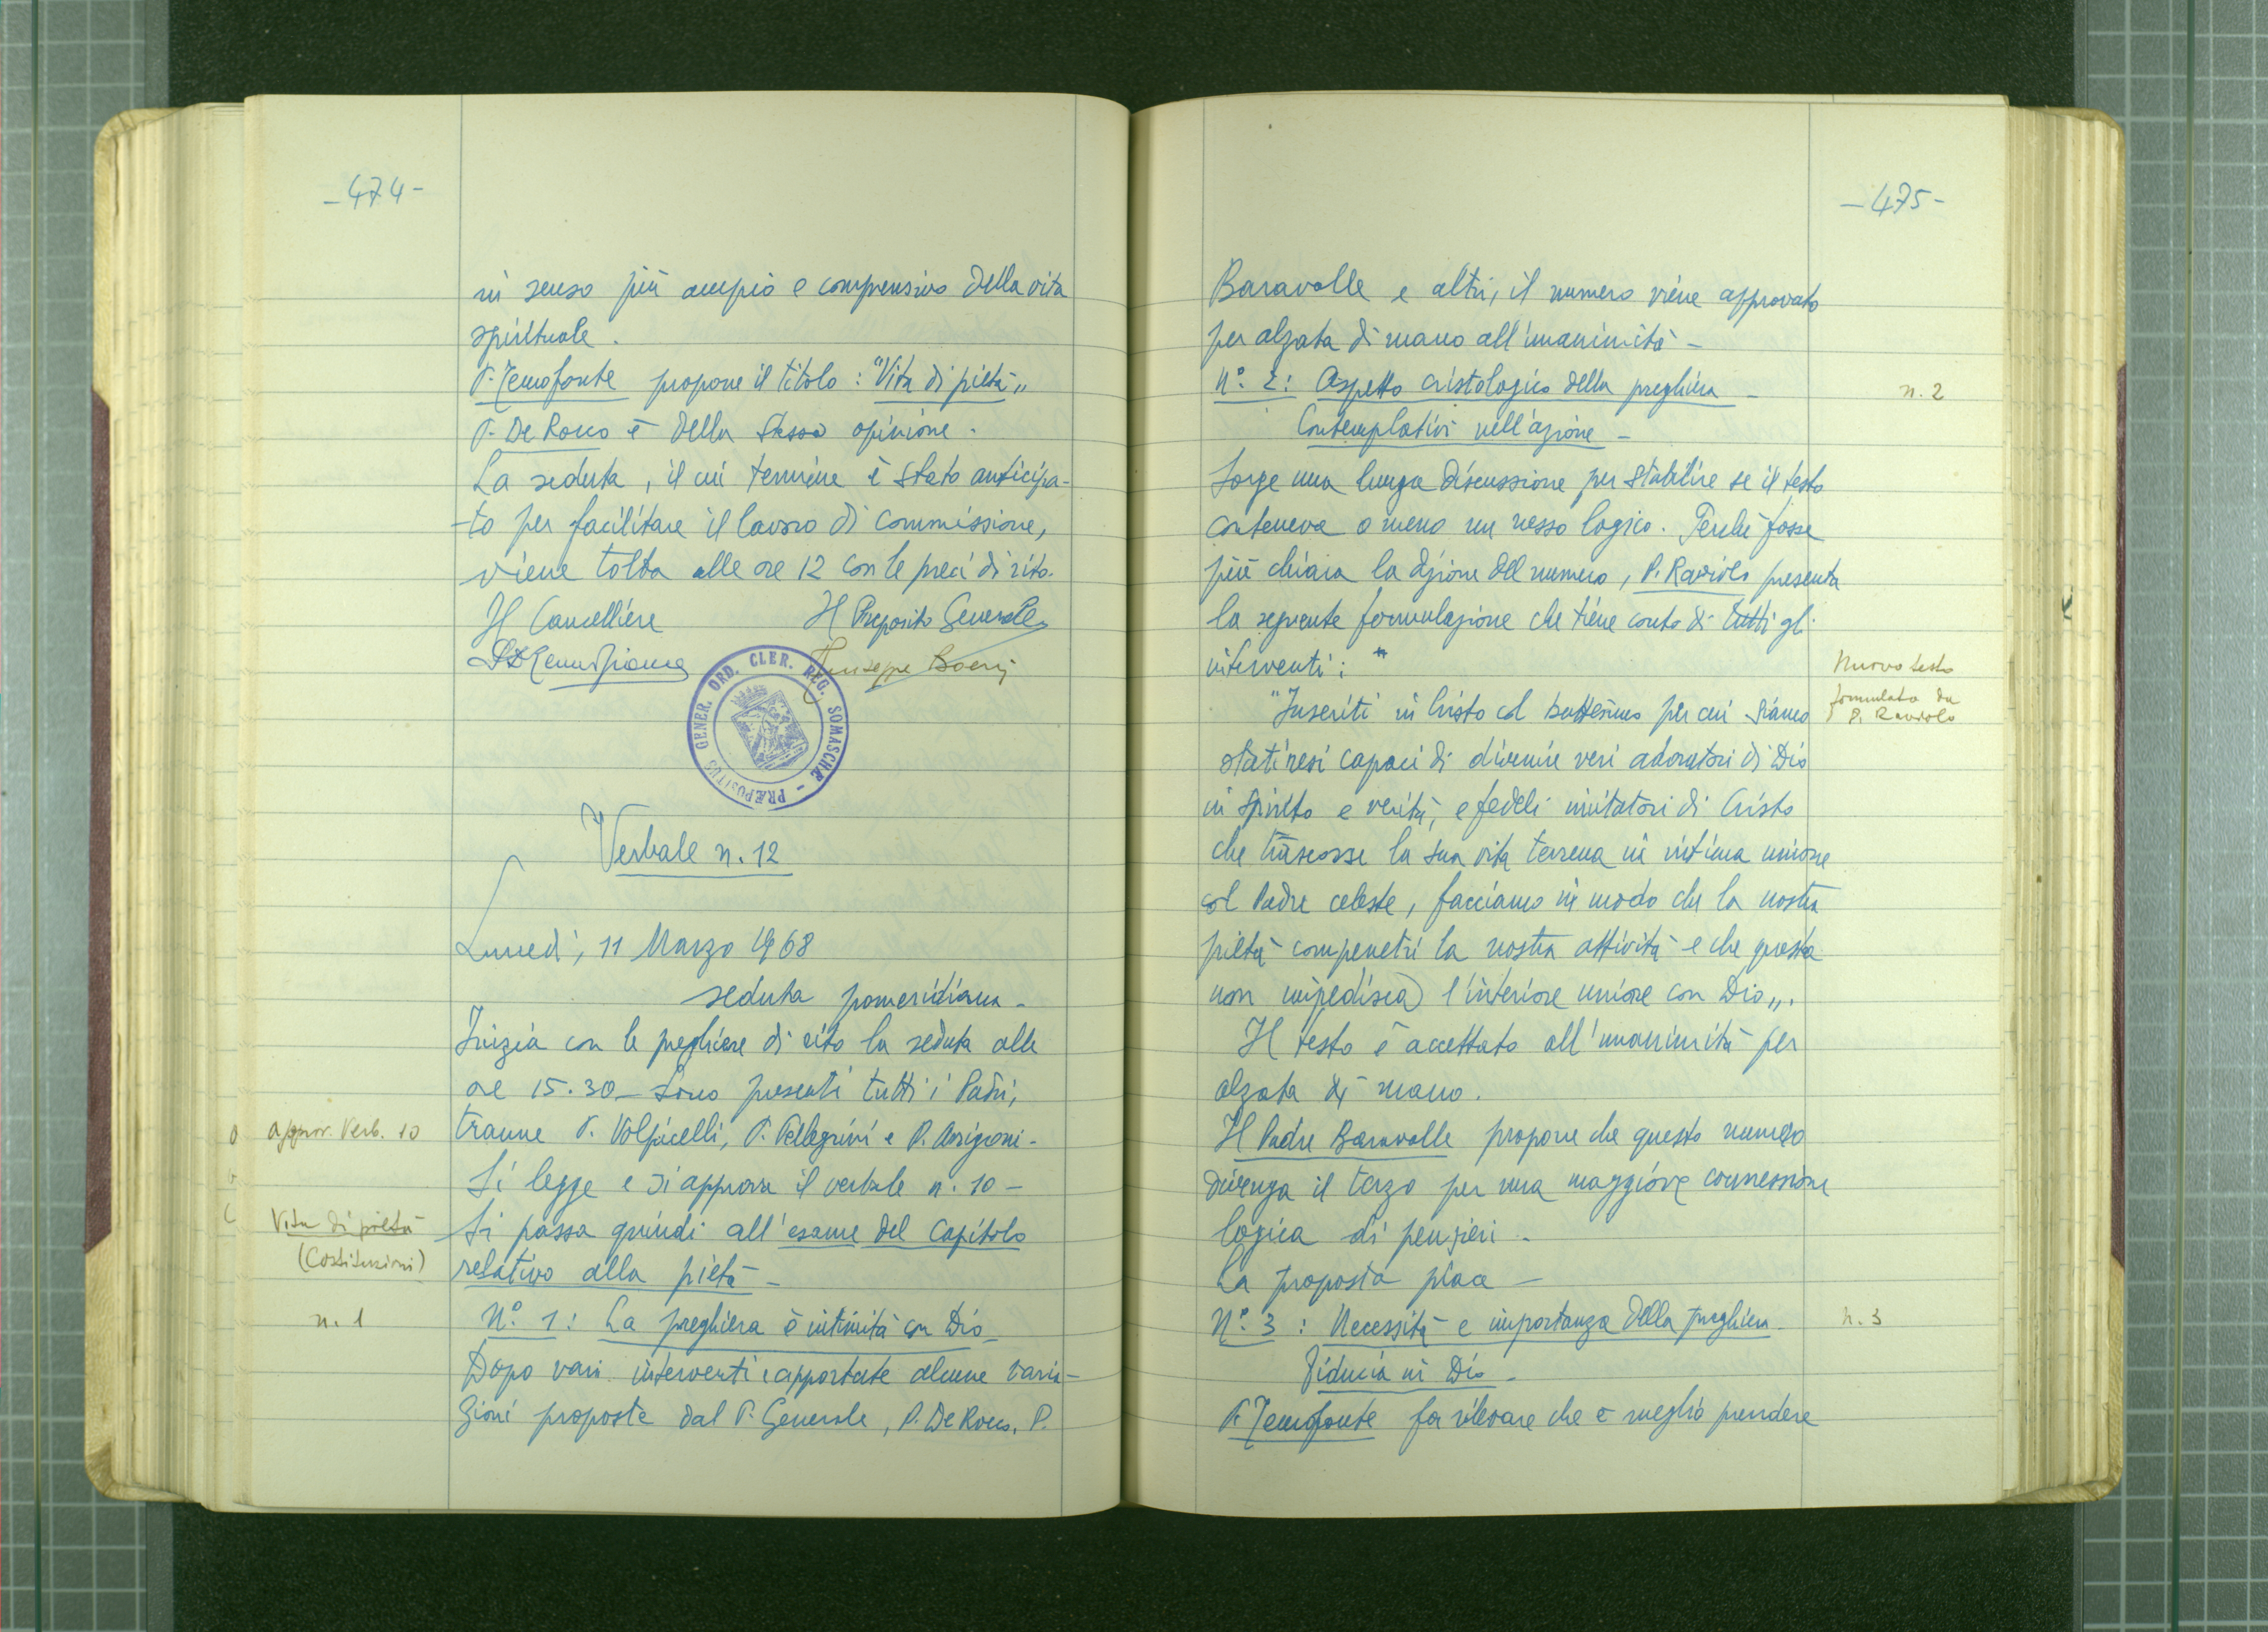 -474-
in senso più ampio e comprensivo della vita
spirituale.
P. Temofonte propone il titolo: "Vita di pietà"
P. De Rocco è della stessa opinione.
La seduta, il cui termine è stato anticipa-
-to per facilitare il lavoro di commissione,
viene tolta alle ore 12 con le preci di rito.
Il Cancelliere Il Preposito Generale
Giuseppe Boeris
PRÆPOSITUS GENER. ORD. CLER. REG. SOMASCHÆ -
Verbale n. 12
Lunedì, 11 Marzo 1968
seduta pomeridiana -
Inizia con le preghiere di rito la seduta alle
ore 15.30 - Sono presenti tutti i Padri,
appr. Verb. 10
tranne P. Volpicelli, P. Pellegrini e P. Arrigoni -
Si legge e si approva il verbale n. 10 -
Vita di pietà
(Costituzioni)
Si passa quindi all'esame del Capitolo
relativo alla pietà -
n. 1
N.º 1: La preghiera è intimità con Dio -
Dopo vari interventi e apportate alcune varia-
zioni proposte dal P. Generale, P. De Rocco, P.
-475-
Baravalle e altri, il numero viene approvato
per alzata di mano all'unanimità -
n. 2
N.º 2: Aspetto cristologico della preghiera -
Contemplativi nell'azione -
Sorge una lunga discussione per stabilire se il testo
conteneva o meno un nesso logico. Perché fosse
più chiara la dizione del numero, P. Raviolo presenta
la seguente formulazione che tiene conto di tutti gli
interventi: "
Nuovo testo
formulato da
P. Raviolo
"Inseriti in Cristo col battesimo per cui siamo
stati resi capaci di divenire veri adoratori di Dio
in spirito e verità, e fedeli imitatori di Cristo
che trascorse la sua vita terrena in intima unione
col Padre celeste, facciamo in modo che la nostra
pietà compenetri la nostra attività e che questa
non impedisca l'interiore unione con Dio".
Il testo è accettato all'unanimità per
alzata di mano.
Il Padre Baravalle propone che questo numero
divenga il terzo per una maggiore connessione
logica di pensieri -
La proposta piace -
n. 3
N.º 3: Necessità e importanza della preghiera -
Fiducia in Dio -
P. Temofonte fa rilevare che è meglio prendere